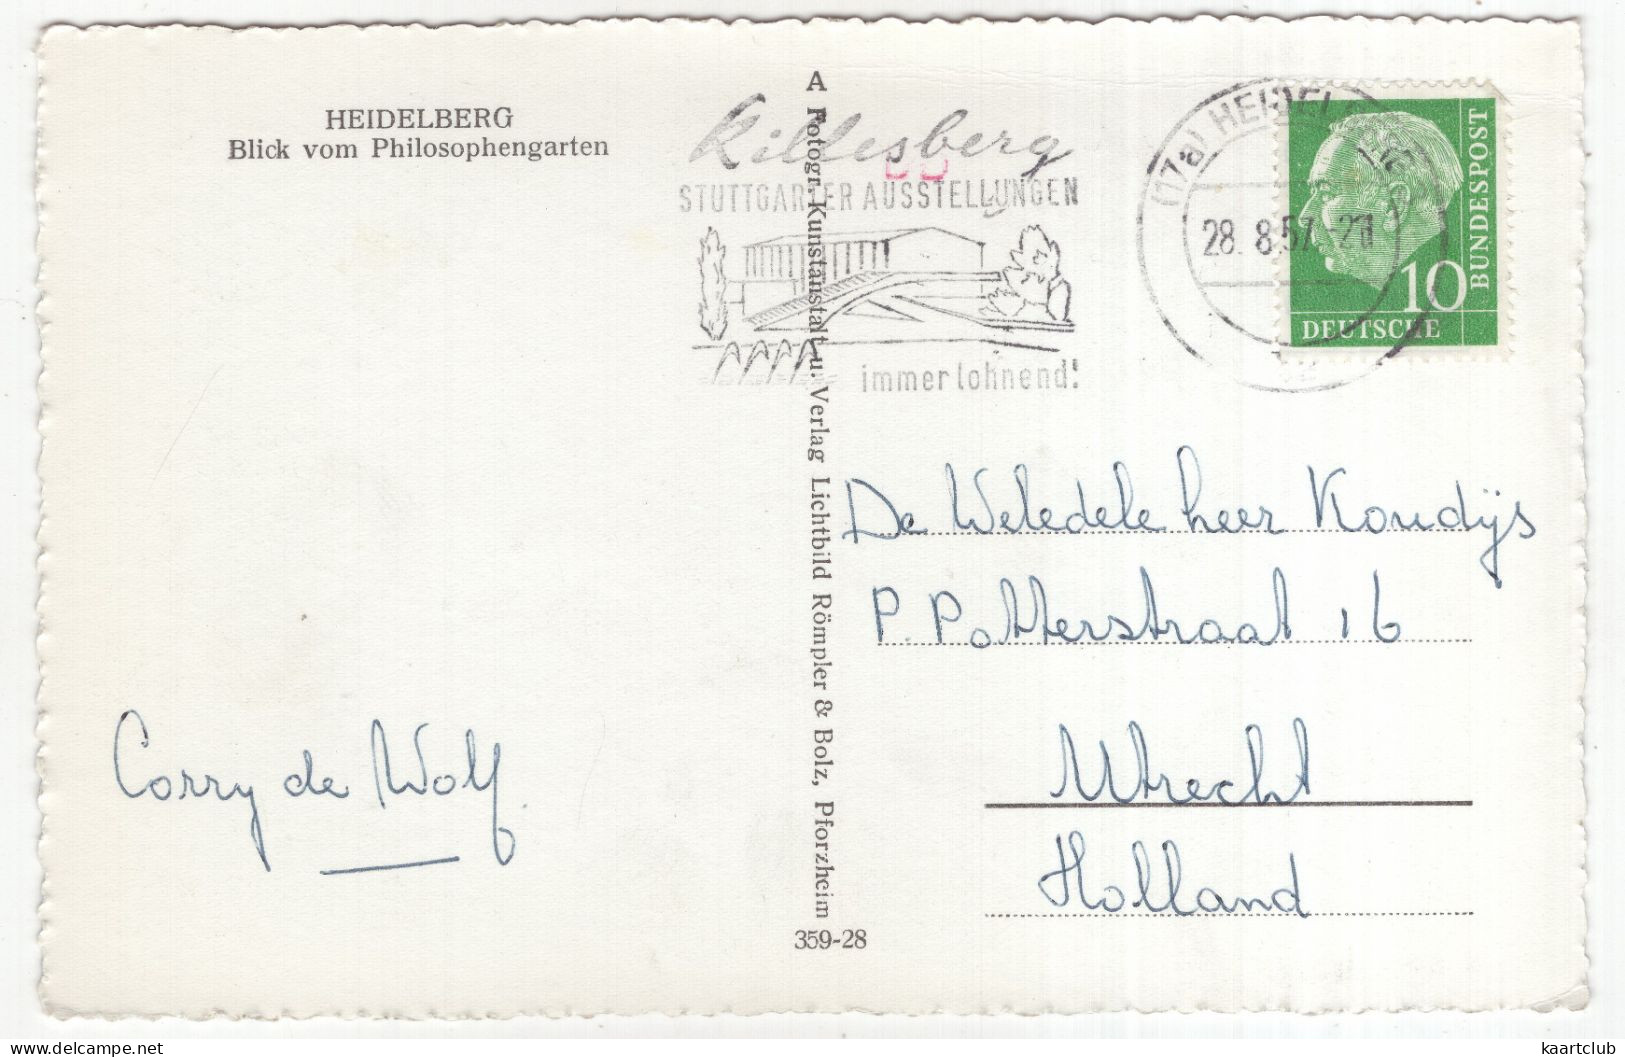 HEIDELBERG
Blick vom Philosophengarten
Killesberg
STUTTGARTER AUSSTELLUNGEN
immer lohnend!
(17a) HEIDELBERG
28. 8.57.-20
BUNDESPOST
10
DEUTSCHE
A Fotogr. Kunstanstalt u. Verlag Lichtbild Römpler & Bolz, Pforzheim
359-28
De Weledele heer Koudijs
P. Potterstraat 16
Utrecht
Holland
Corry de Wolf.
kaartclub